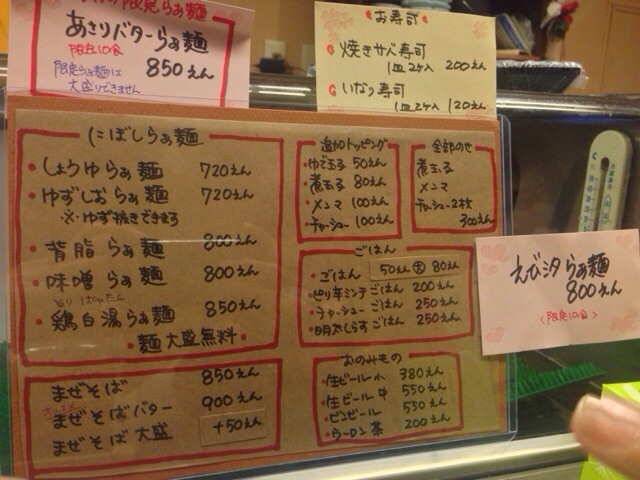 の限定らぁ麺
あさりバターらぁ麺
限定10食 850えん
限定らぁ麺は
大盛りできません
お寿司
焼きサバ寿司
1皿2ケ入 200えん
いなり寿司
1皿2ケ入 120えん
にぼしらぁ麺
・しょうゆらぁ麺 720えん
・ゆずしおらぁ麺 720えん
※ゆず抜きできます
・背脂らぁ麺 800えん
・味噌らぁ麺 800えん
とり ぱいたん
・鶏白湯らぁ麺 850えん
・麺大盛無料・
まぜそば 850えん
まぜそばバター 900えん
まぜそば大盛 +50えん
追加トッピング
・ゆで玉子 50えん
・煮玉子 80えん
・メンマ 100えん
・チャーシュー 100えん
全部のせ
煮玉子
メンマ
チャーシュー2枚
300えん
ごはん
・ごはん 50えん 大 80えん
・ピリ辛ミンチごはん 200えん
・チャーシューごはん 250えん
・明太しらすごはん 250えん
おのみもの
・生ビール小 380えん
・生ビール中 550えん
・ビンビール 550えん
・ウーロン茶 200えん
えび汐らぁ麺
800えん
<限定10食>